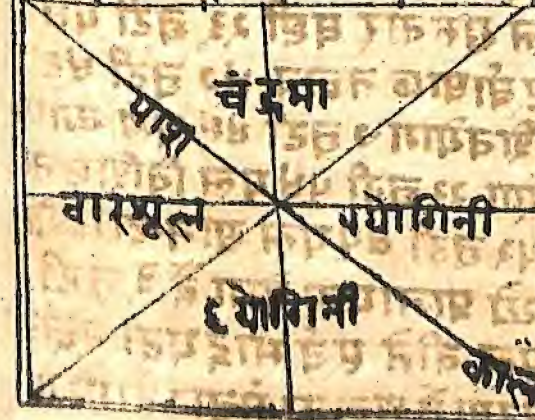 चंद्रमा
पाश
वारशूल
५योगिनी
६योगिनी
काल